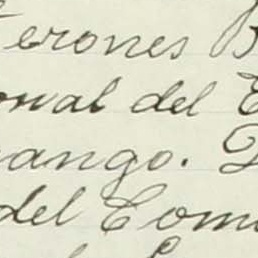 Terones B
onal del E
ango. D
del Comi